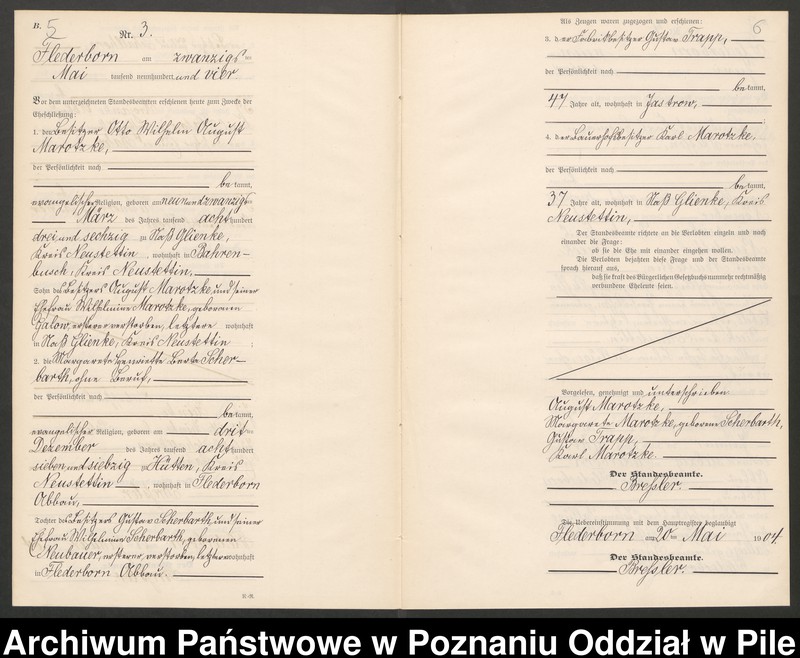 B.
5
Nr. 3.
Flederborn am zwanzigsten
Mai tausend neunhundert und vier.
Vor dem unterzeichneten Standesbeamten erschienen heute zum Zwecke der
Eheschließung:
1. der Besitzer Otto Wilhelm August
Marotzke,
der Persönlichkeit nach
be kannt,
evangelischer Religion, geboren am neunundzwanzigsten
März des Jahres tausend acht hundert
dreiundsechzig zu Naß Glienke,
Kreis Neustettin, wohnhaft in Bahren-
busch, Kreis Neustettin,
Sohn des Besitzers August Marotzke, und seiner
Ehefrau Wilhelmine Marotzke, geborenen
Galow, ersterer verstorben, letztere wohnhaft
in Naß Glienke, Kreis Neustettin ;
2. die Margarete Henriette Berta Scher-
barth, ohne Beruf,
der Persönlichkeit nach
be kannt,
evangelischer Religion, geboren am dritten
Dezember des Jahres tausend acht hundert
siebenundsiebzig zu Hütten, Kreis
Neustettin, wohnhaft in Flederborn
Abbau,
Tochter des Besitzers Gustav Scherbarth, und seiner
Ehefrau Wilhelmine Scherbarth, geborenen
Neubauer, ersterer verstorben, letztere wohnhaft
in Flederborn Abbau.
6
Als Zeugen waren zugezogen und erschienen:
3. der Fabrikbesitzer Gustav Trapp,
der Persönlichkeit nach
be kannt,
47 Jahre alt, wohnhaft in Jastrow,
4. der Bauerhofsbesitzer Karl Marotzke,
der Persönlichkeit nach
be kannt,
37 Jahre alt, wohnhaft in Naß Glienke, Kreis
Neustettin,
Der Standesbeamte richtete an die Verlobten einzeln und nach
einander die Frage:
ob sie die Ehe mit einander eingehen wollen.
Die Verlobten bejahten diese Frage und der Standesbeamte
sprach hierauf aus,
daß sie kraft des Bürgerlichen Gesetzbuchs nunmehr rechtmäßig
verbundene Eheleute seien.
Vorgelesen, genehmigt und unterschrieben
August Marotzke,
Margarete Marotzke, geborene Scherbarth,
Gustav Trapp,
Karl Marotzke.
Der Standesbeamte.
Bressler.
Die Uebereinstimmung mit dem Hauptregister beglaubigt
Flederborn am 20 ten Mai 1904
Der Standesbeamte.
Bressler.
Archiwum Państwowe w Poznaniu Oddział w Pile